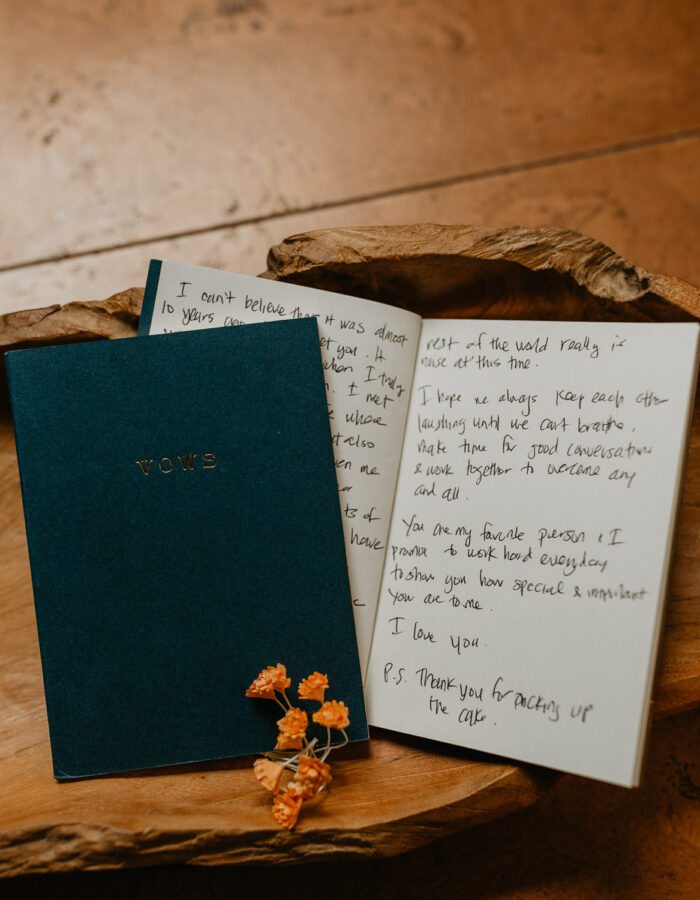 VOWS
I can't believe that it was almost
10 years ago
et you. It
when I truly
. I met
e where
t also
en me
or
ts of
have
rest of the world really is
noise at this time.
I hope we always keep each other
laughing until we can't breathe,
make time for good conversations
& work together to overcome any
and all.
You are my favorite person & I
promise to work hard everyday
to show you how special & important
you are to me.
I love you.
P.S. Thank you for picking up
the cake.